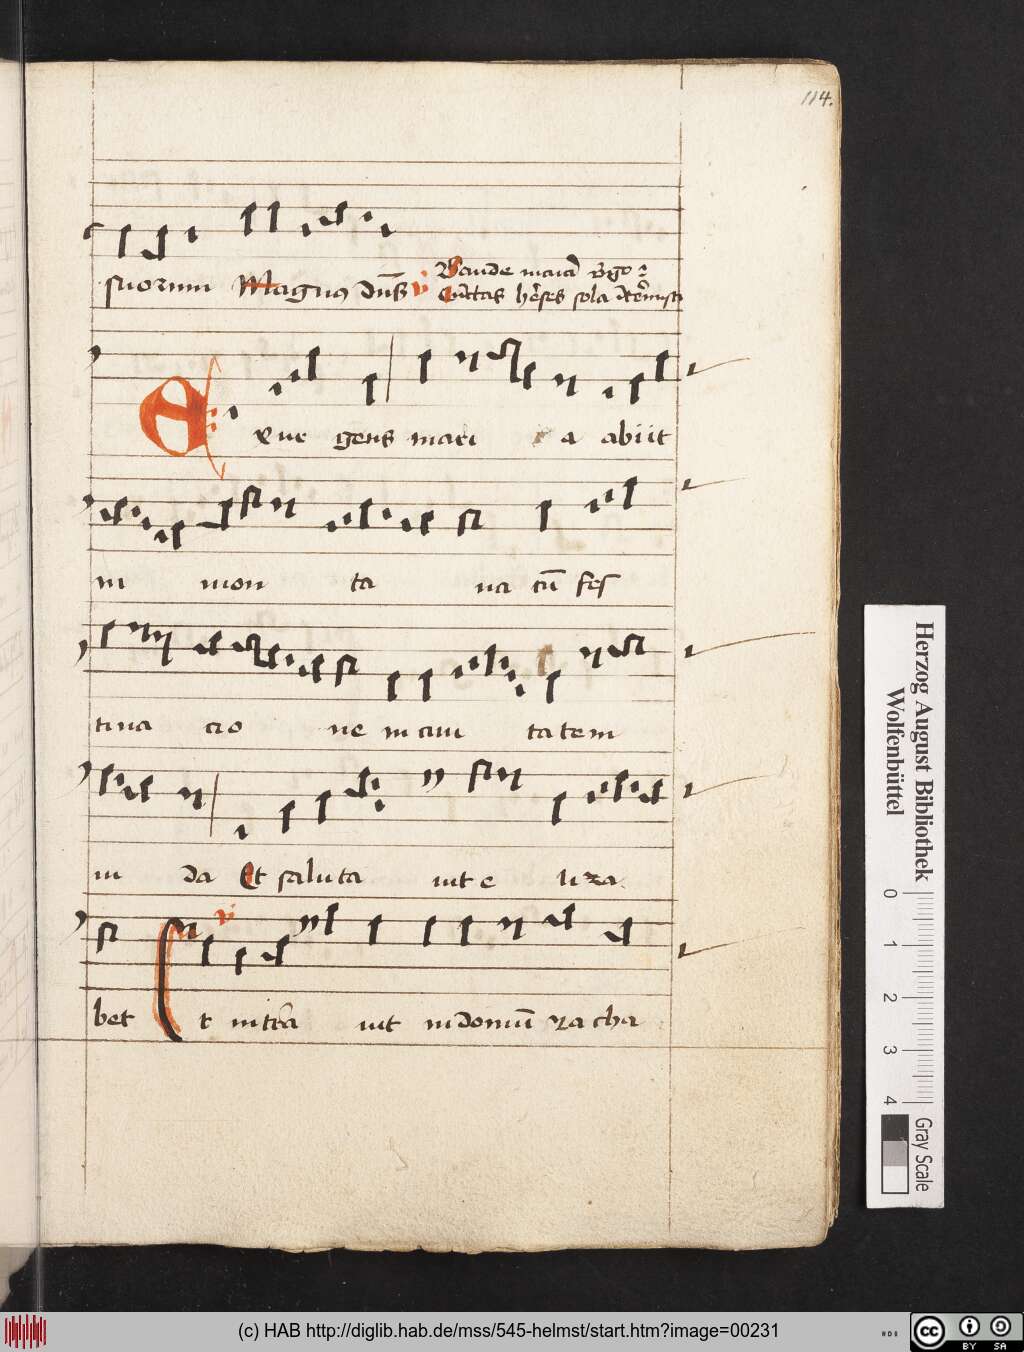 114.
suorum Magnus dns v Gaude maria vgo :
Cunctas hereses sola
Exur gens mari a abiit
in mon ta na cu fes
tina cio ne in ciui ta tem
iu da Et saluta uit e liza
bet v
Et intra uit in domu zacha
Herzog August Bibliothek
Wolfenbüttel
0 1 2 3 4
Gray Scale
(c) HAB http://diglib.hab.de/mss/545-helmst/start.htm?image=00231
cc BY SA